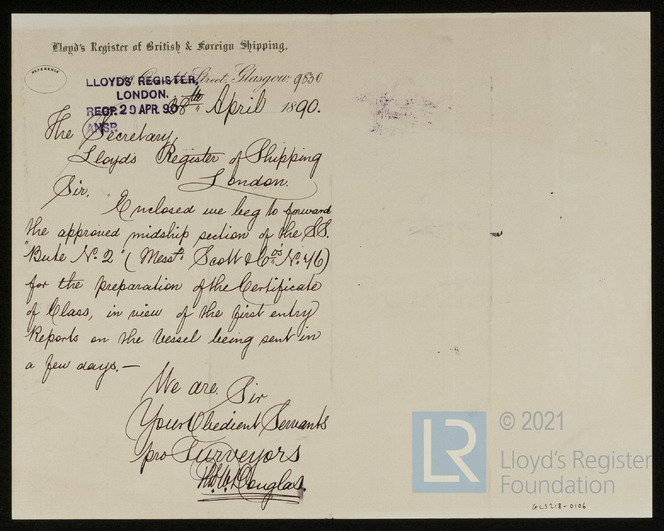 Lloyd's Register of British & Foreign Shipping.
REFERENCE
Street, Glasgow, 9830
LLOYDS' REGISTER,
LONDON.
RECP. 29 APR. 90
ANSP.
28th April 1890.
The Secretary,
Lloyds Register of Shipping
London.
Sir,
Enclosed we beg to forward
the approved midship section of the S.S.
"Bute No. 2" (Messrs. Scott & Co's No. 46)
for the preparation of the Certificate
of Class, in view of the first entry
Reports on the vessel being sent in
a few days.—
We are, Sir
Your Obedient Servants
pro Surveyors
Douglas.
LR
© 2021
Lloyd's Register
Foundation
GLS218-0106